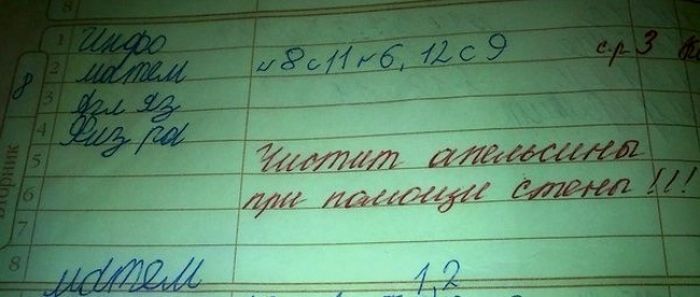 8
1 Инфо
2 матем № 8 с 11 № 6, 12 с 9 с.р. 3
3 Англ яз
4 Физ ра
5 Чистит апельсины
6 при помощи стены!!!
7
8
матем 1,2
8
вторник